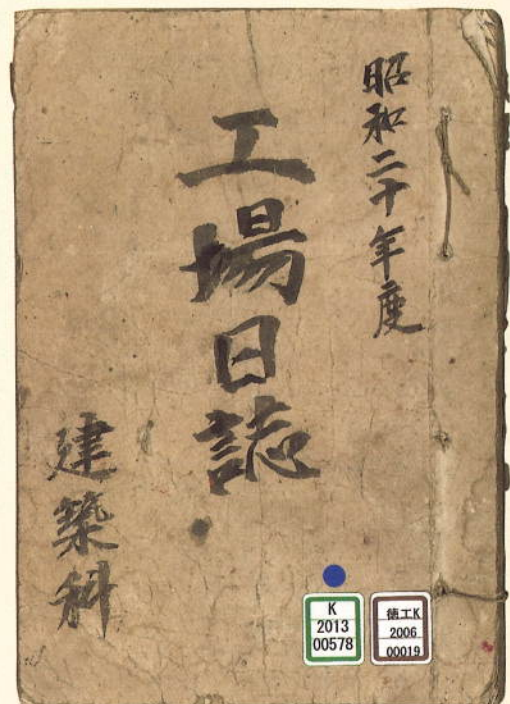 昭和二十年度
工場日誌
建築科
K
2013
00578
徳工K
2006
00019